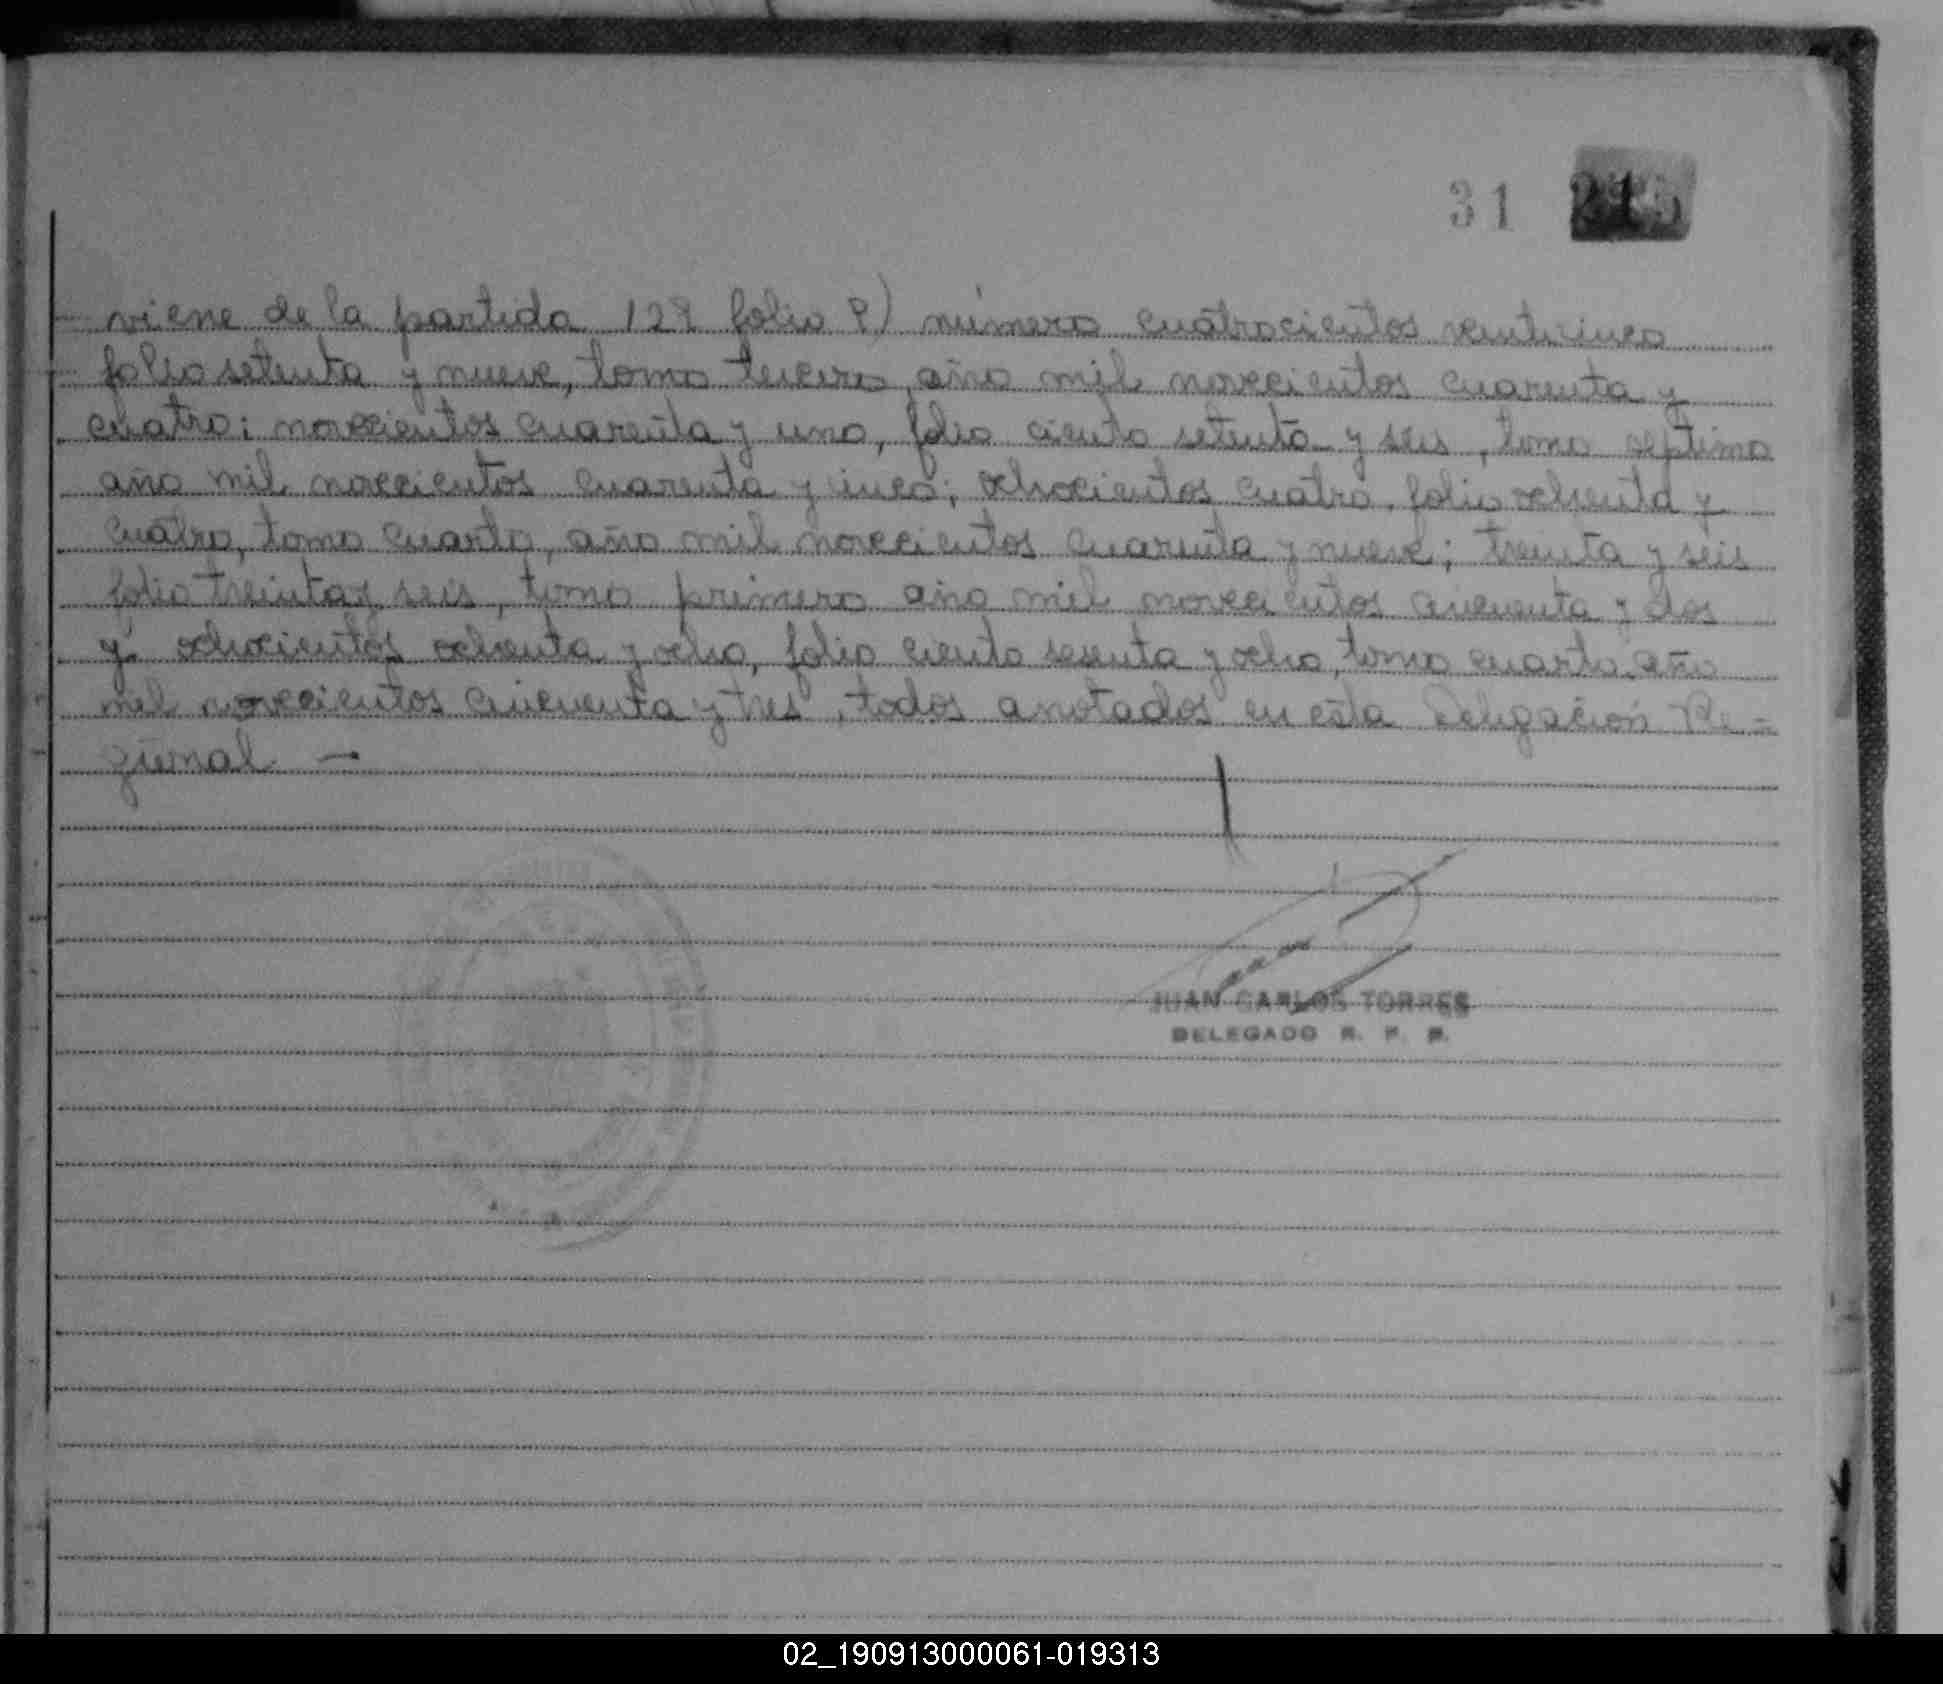 31 215
viene de la partida 129 folio 9) número cuatrocientos veinticinco
folio setenta y nueve, tomo tercero, año mil novecientos cuarenta y
cuatro; novecientos cuarenta y uno, folio ciento setenta y seis, tomo septimo
año mil novecientos cuarenta y cinco; ochocientos cuatro, folio ochenta y
cuatro, tomo cuarto, año mil novecientos cuarenta y nueve; treinta y seis
folio treinta y seis, tomo primero año mil novecientos cincuenta y dos
y ochocientos ochenta y ocho, folio ciento sesenta y ocho, tomo cuarto, año
mil novecientos cincuenta y tres, todos anotados en esta Delegación Re=
gional —
JUAN CARLOS TORRES
DELEGADO R. P. P.
02_190913000061-019313